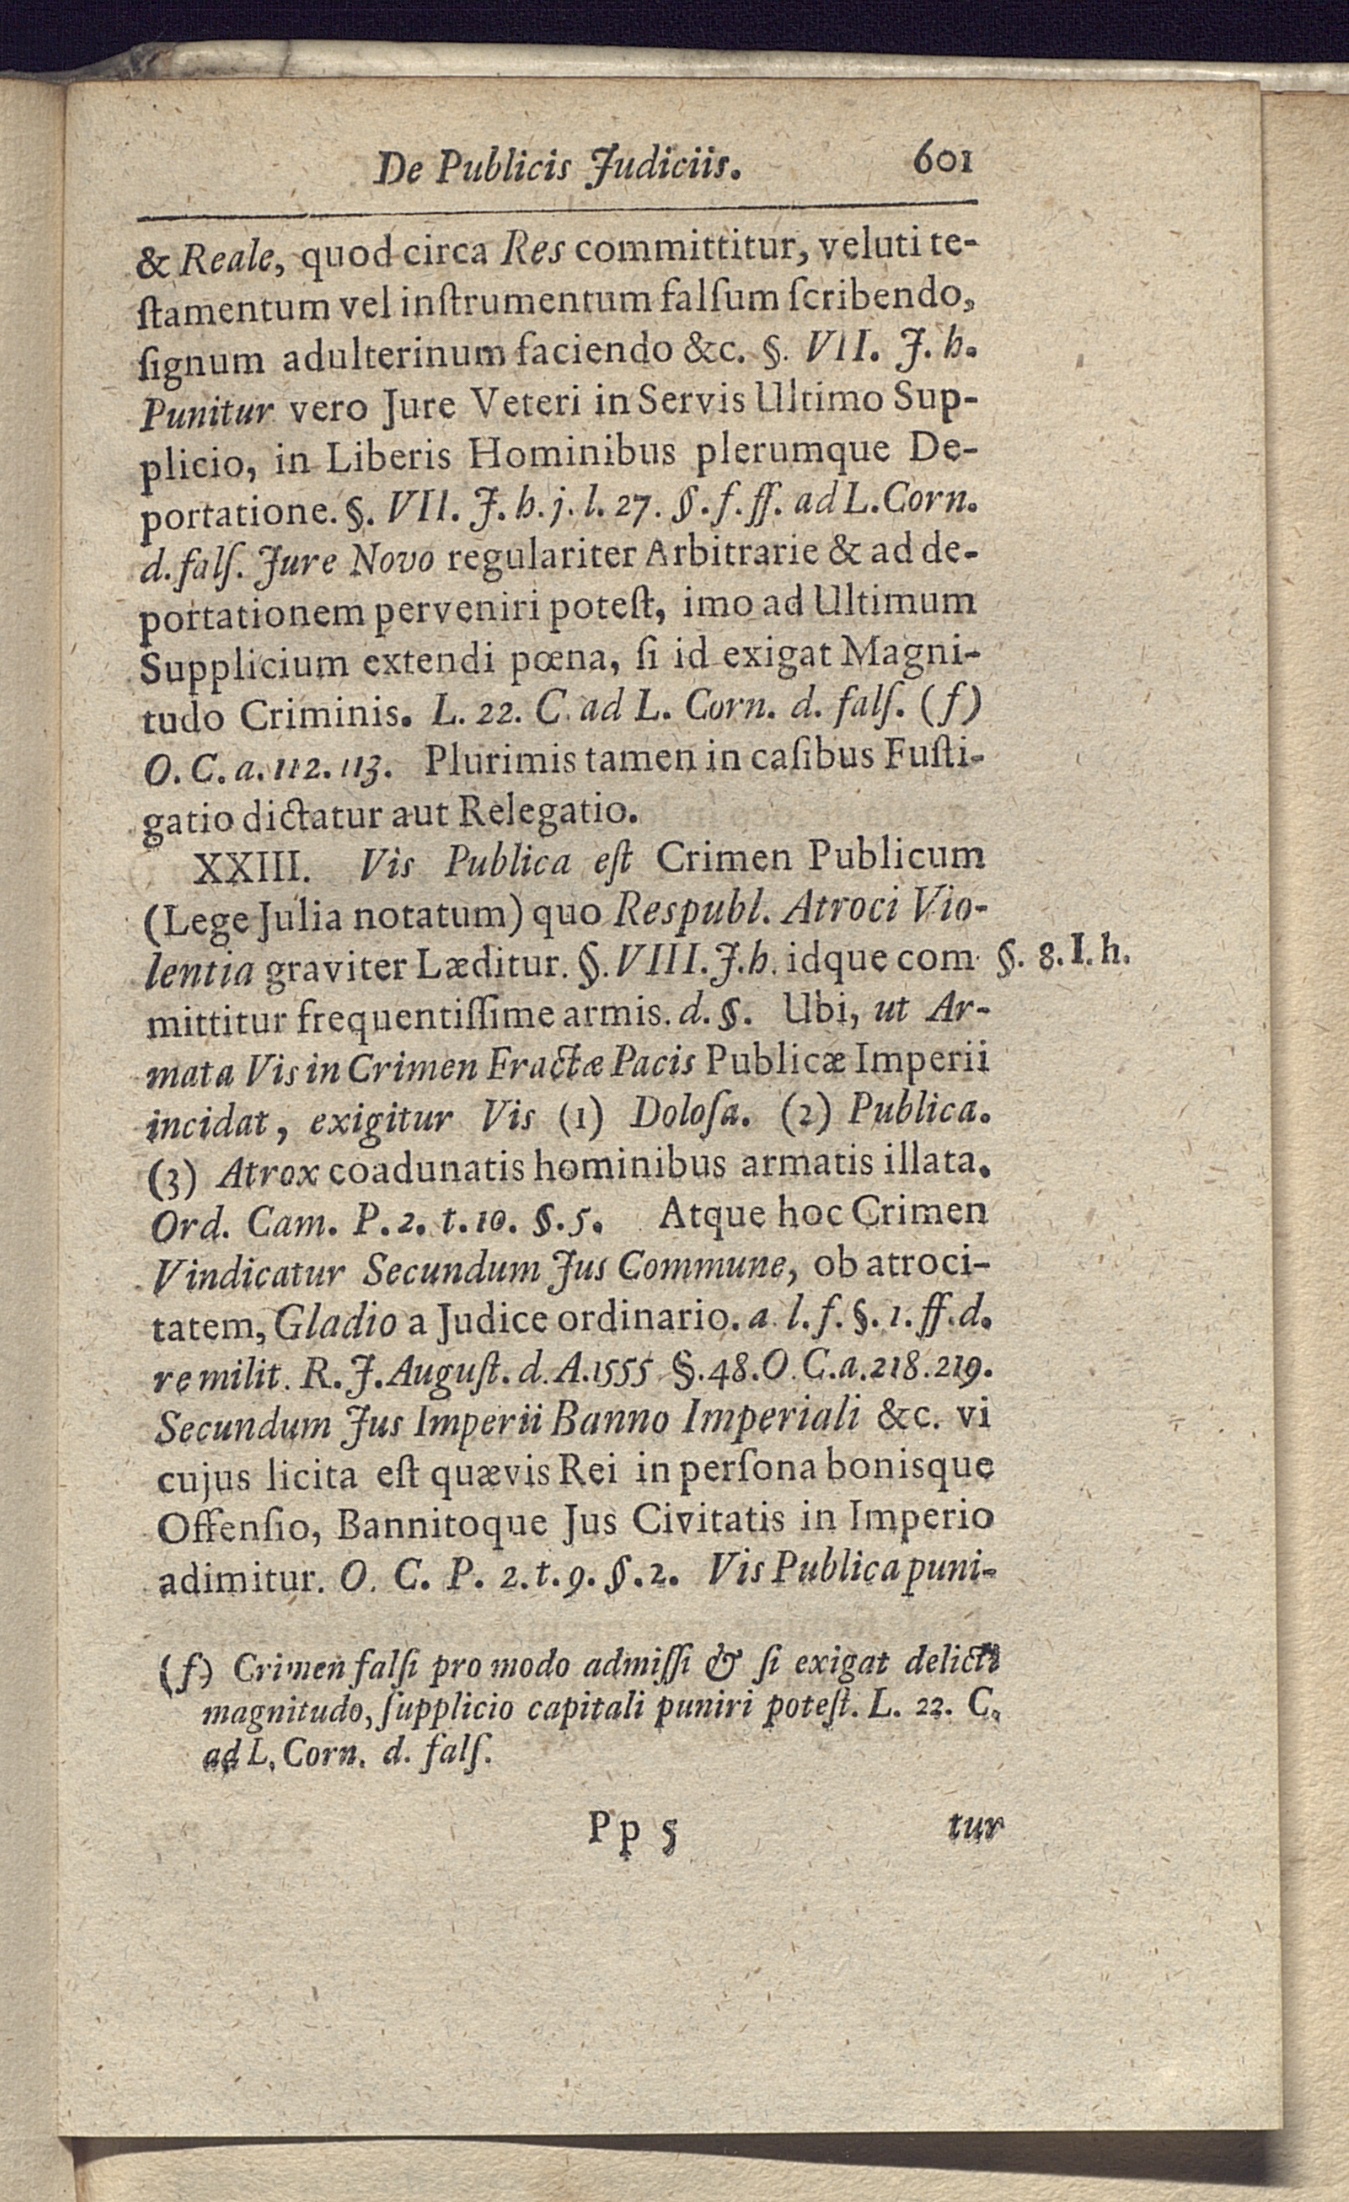 De Publicis Judiciis. 601
& Reale, quod circa Res committitur, veluti te-
ſtamentum vel inſtrumentum falſum ſcribendo,
ſignum adulterinum faciendo &c. §. VII. J. h.
Punitur vero Jure Veteri in Servis Ultimo Sup-
plicio, in Liberis Hominibus plerumque De-
portatione. §. VII. J. h. j. l. 27. §. f. ff. ad L. Corn.
d. falſ. Jure Novo regulariter Arbitrarie & ad de-
portationem perveniri poteſt, imo ad Ultimum
Supplicium extendi pœna, ſi id exigat Magni-
tudo Criminis. L. 22. C. ad L. Corn. d. falſ. (f)
O. C. a. 112. 113. Plurimis tamen in caſibus Fuſti-
gatio dictatur aut Relegatio.
XXIII. Vis Publica eſt Crimen Publicum
(Lege Julia notatum) quo Respubl. Atroci Vio-
lentia graviter Læditur. §. VIII. J. h. idque com- §. 8. I. h.
mittitur frequentiſſime armis. d. §. Ubi, ut Ar-
mata Vis in Crimen Fractæ Pacis Publicæ Imperii
incidat, exigitur Vis (1) Doloſa. (2) Publica.
(3) Atrox coadunatis hominibus armatis illata.
Ord. Cam. P. 2. t. 10. §. 5. Atque hoc Crimen
Vindicatur Secundum Jus Commune, ob atroci-
tatem, Gladio a Judice ordinario. a l. f. §. 1. ff. d.
re milit. R. J. Auguſt. d. A. 1555 §. 48. O. C. a. 218. 219.
Secundum Jus Imperii Banno Imperiali &c. vi
cujus licita eſt quævis Rei in perſona bonisque
Offenſio, Bannitoque Jus Civitatis in Imperio
adimitur. O. C. P. 2. t. 9. §. 2. Vis Publica puni-
(f) Crimen falſi pro modo admiſſi & ſi exigat delicti
magnitudo, ſupplicio capitali puniri poteſt. L. 22. C.
ad L. Corn. d. falſ.
Pp 5 tur